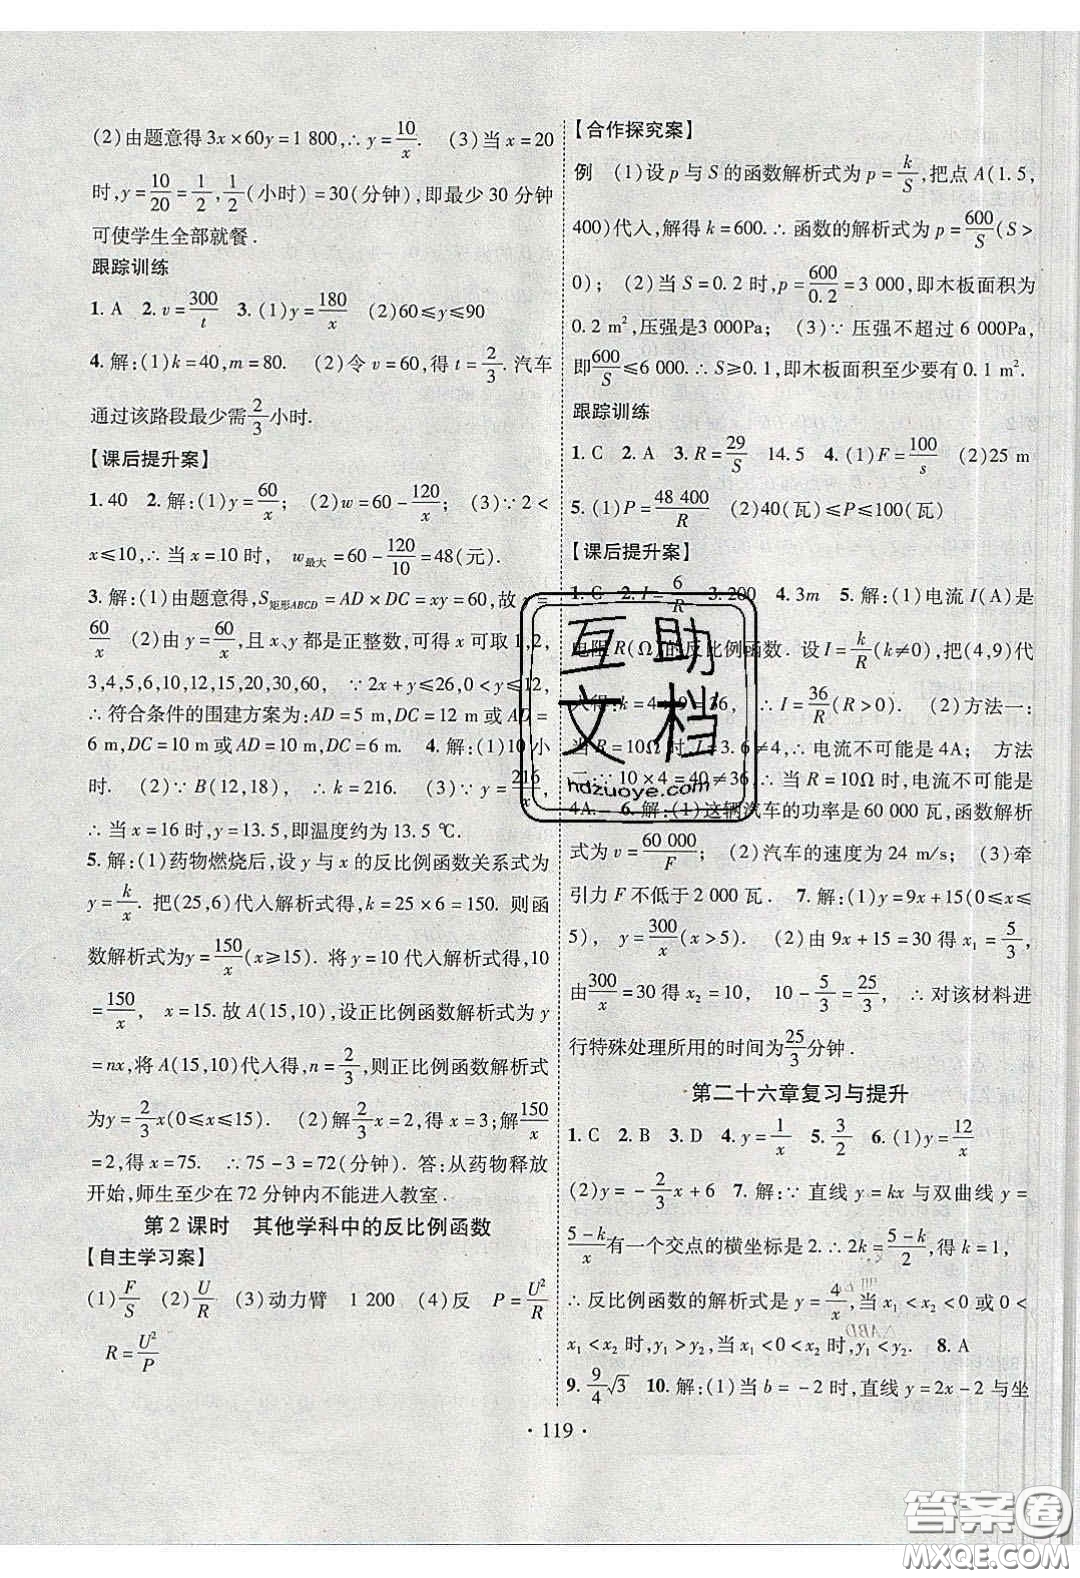 (2)由题意得 3x×60y=1 800,∴y=10/x. (3)当 x=20
时,y=10/20=1/2,1/2(小时)=30(分钟),即最少 30 分钟
可使学生全部就餐.
跟踪训练
1. A 2. v=300/t 3. (1)y=180/x (2)60≤y≤90
4. 解:(1)k=40,m=80. (2)令 v=60,得 t=2/3. 汽车
通过该路段最少需2/3小时.
【课后提升案】
1. 40 2. 解:(1)y=60/x; (2)w=60-120/x; (3)∵2<
x≤10,∴当 x=10 时, w最大=60-120/10=48(元).
3. 解:(1)由题意得,S矩形ABCD=AD×DC=xy=60,故
60/x (2)由 y=60/x,且 x、y 都是正整数,可得 x 可取 1,2,
3,4,5,6,10,12,15,20,30,60, ∵2x+y≤26,0<y≤12,
∴符合条件的围建方案为:AD=5 m,DC=12 m或AD=
6 m,DC=10 m或AD=10 m,DC=6 m. 4. 解:(1)10小
时. (2)∵B(12,18), ∴k=216. (3)∵y=216/x,
∴当 x=16 时,y=13.5,即温度约为 13.5 ℃.
5. 解:(1)药物燃烧后,设 y 与 x 的反比例函数关系式为
y=k/x. 把(25,6)代入解析式得,k=25×6=150. 则函
数解析式为y=150/x(x≥15). 将 y=10 代入解析式得,10
=150/x, x=15. 故 A(15,10),设正比例函数解析式为 y
=nx,将 A(15,10)代入得,n=2/3,则正比例函数解析式
为y=2/3x(0≤x≤15) (2)解2/3x=2 得 x=3;解150/x
=2,得 x=75. ∴75-3=72(分钟). 答:从药物释放
开始,师生至少在 72 分钟内不能进入教室.
第 2 课时 其他学科中的反比例函数
【自主学习案】
(1)F/S (2)U/R (3)动力臂 1 200 (4)反 P=U²/R
R=U²/P
【合作探究案】
例 (1)设 p 与 S 的函数解析式为 p=k/S,把点 A(1.5,
400)代入,解得 k=600.∴函数的解析式为 p=600/S(S>
0); (2)当 S=0.2 时,p=600/0.2=3 000,即木板面积为
0.2 m²,压强是3 000Pa; (3)∵压强不超过 6 000Pa,
即600/S≤6 000.∴S≥0.1,即木板面积至少要有 0.1 m².
跟踪训练
1. C 2. A 3. R=29/S 14.5 4. (1)F=100/s (2)25 m
5. (1)P=48 400/R (2)40(瓦)≤P≤100(瓦)
【课后提升案】
1. C 2. I=6/R 3. 200 4. 3m 5. 解:(1)电流 I(A)是
电阻 R(Ω)的反比例函数. 设 I=k/R(k≠0),把(4,9)代
入得:k=4×9=36, ∴I=36/R(R>0). (2)方法一:
当 R=10Ω时,I=3.6≠4,∴电流不可能是 4A; 方法
二:∵10×4=40≠36,∴当 R=10Ω时,电流不可能是
4A. 6. 解:(1)这辆汽车的功率是 60 000 瓦,函数解析
式为 v=60 000/F; (2)汽车的速度为 24 m/s; (3)牵
引力 F 不低于 2 000 瓦. 7. 解:(1)y=9x+15(0≤x≤
5), y=300/x(x>5). (2)由 9x+15=30 得 x₁=5/3,
由300/x=30 得 x₂=10, 10-5/3=25/3, ∴对该材料进
行特殊处理所用的时间为25/3分钟.
第二十六章复习与提升
1. C 2. B 3. D 4. y=1/x 5. 3/2 6. (1)y=12/x
(2)y=-2/3x+6 7. 解:∵直线 y=kx 与双曲线 y=
5-k/x有一个交点的横坐标是 2.∴2k=5-k/2,得 k=1,
∴反比例函数的解析式是 y=4/x,当 x₁<x₂<0 或 0<
x₁<x₂ 时,y₁>y₂,当 x₁<0<x₂ 时,y₁<y₂. 8. A
9. 9/4√3 10. 解:(1)当 b=-2 时,直线 y=2x-2 与坐
· 119 ·
互助文档
hdzuoye.com
答案圈
MXQE.COM